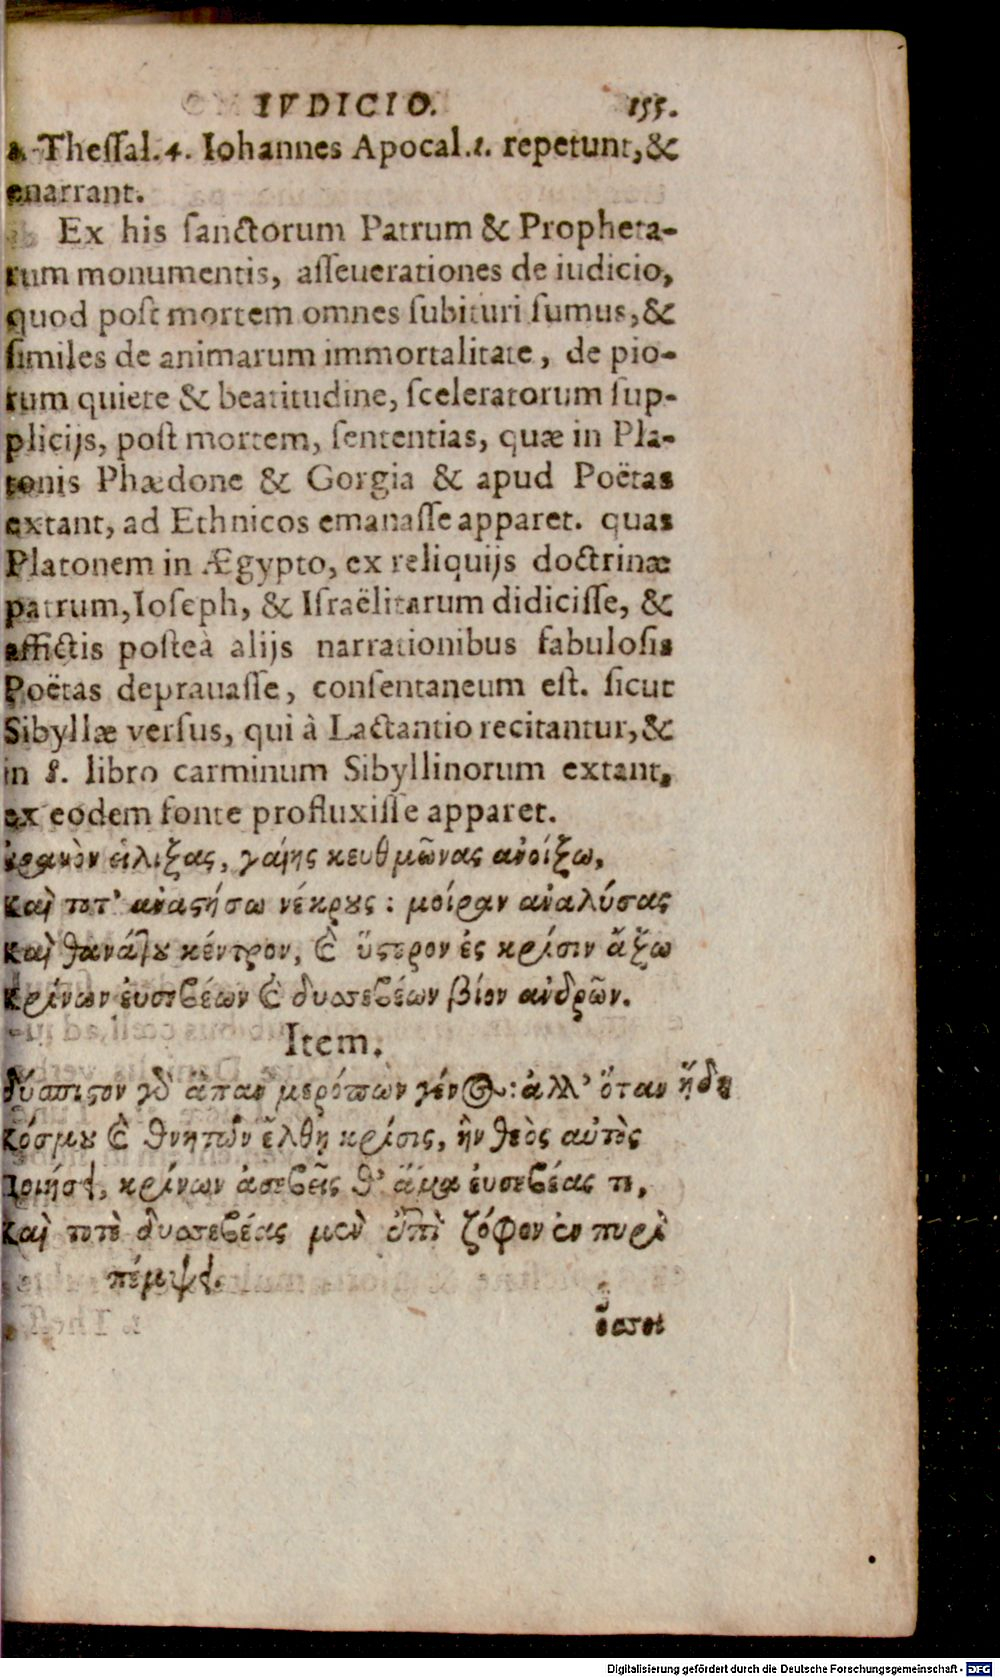 IVDICIO. 155.
1. Thessal. 4. Iohannes Apocal. 1. repetunt, &
enarrant.
Ex his sanctorum Patrum & Propheta-
rum monumentis, asseuerationes de iudicio,
quod post mortem omnes subituri sumus, &
similes de animarum immortalitate, de pio-
rum quiete & beatitudine, sceleratorum sup-
plicijs, post mortem, sententias, quæ in Pla-
tonis Phædone & Gorgia & apud Poëtas
extant, ad Ethnicos emanasse apparet. quas
Platonem in Ægypto, ex reliquijs doctrinæ
patrum, Ioseph, & Israëlitarum didicisse, &
affictis posteà alijs narrationibus fabulosis
Poëtas deprauasse, consentaneum est. sicut
Sibyllæ versus, qui à Lactantio recitantur, &
in 8. libro carminum Sibyllinorum extant,
ex eodem fonte profluxisse apparet.
ὐρανὸν εἱλιξας, γαίης κευθμῶνας ἀνοίξω,
Καὶ τότ' ἀναστήσω νέκρους : μοίραν ἀναλύσας
Καὶ θανάτου κέντρον, καὶ ὕστερον ἐς κρίσιν ἄξω
Κρίνων ἐυσεβέων καὶ δυσσεβέων βίον ἀνδρῶν.
Item.
δύσπιστον γὰρ ἅπαν μερόπων γένος : ἀλλ' ὅταν ἤδη
Κόσμου καὶ θνητῶν ἔλθῃ κρίσις, ἣν θεὸς αὐτὸς
Ποιήσει, κρίνων ἀσεβεῖς θ' ἅμα ἐυσεβέας τε,
Καὶ τότε δυσσεβέας μὲν ἐπὶ ζόφον ἐν πυρὶ
πέμψει.
ὅσσοι
Digitalisierung gefördert durch die Deutsche Forschungsgemeinschaft - DFG